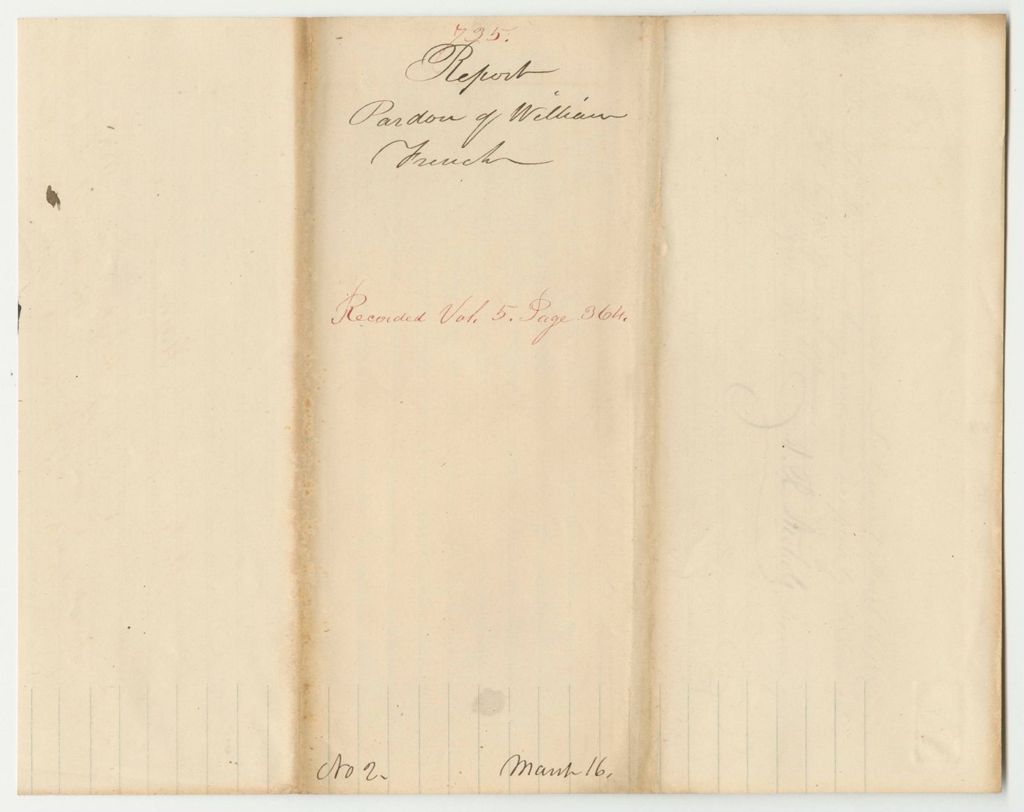 735.
Report
Pardon of William
French
Recorded Vol. 5. Page 364.
No 2. March 16.